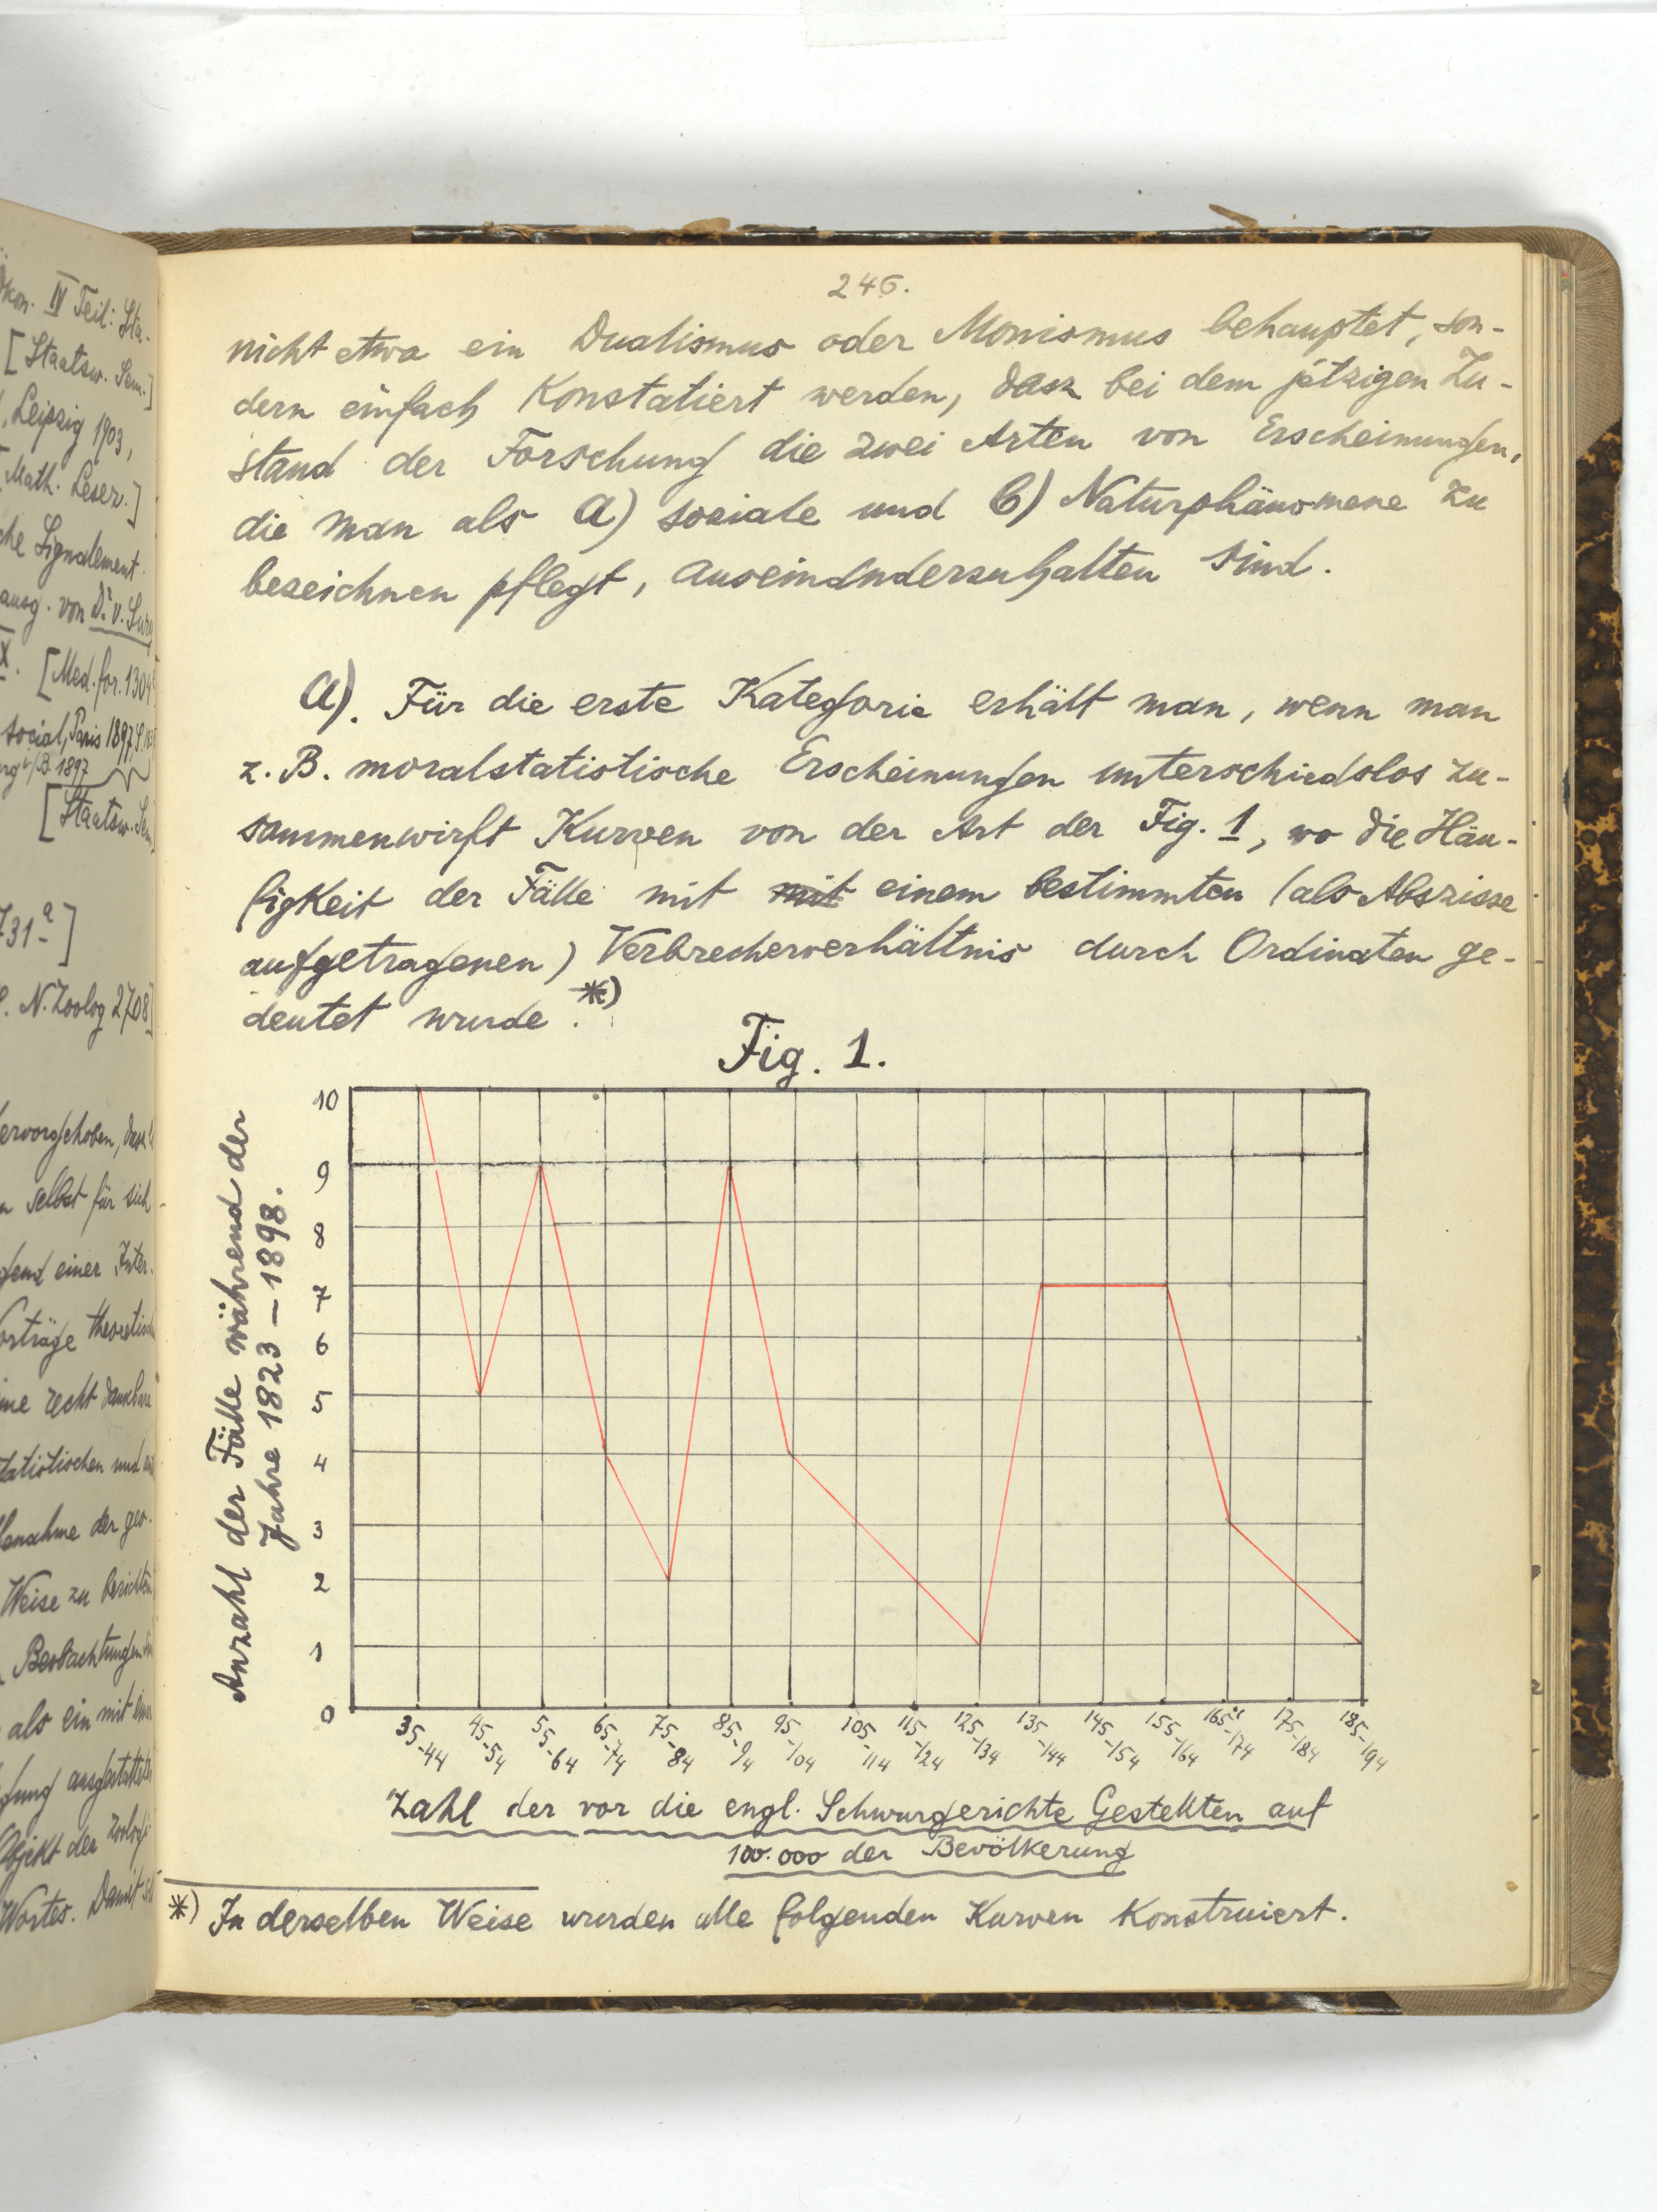 ökon. IV Teil: Sta-
[Staatsw. Sem.]
, Leipzig 1903,
Math. Leser.]
che Signalement.
ausg. von Dr. v. Sury
X. [Med. for. 1304
social, Paris 1897
1897
[Staatsw. Sem
731a]
N. Zoolog 2708]
ervorgehoben, dass
selbst für sich
gend einer Inter-
orträge theoretisch
ine recht dankbare
tatistischen und
nahme der geo-
Weise zu berichten
Beobachtungen
als ein mit einer
fung ausgestattetes
Objekt der Zoologi
Wortes. Damit
246.
nicht etwa ein Dualismus oder Monismus behauptet, son-
dern einfach Konstatiert werden, dasz bei dem jetzigen Zu-
stand der Forschung die zwei Arten von Erscheinungen,
die man als a) soziale und b) Naturphänomene zu
bezeichnen pflegt, auseinanderzuhalten sind.
a). Für die erste Kategorie erhält man, wenn man
z. B. moralstatistische Erscheinungen unterschiedslos zu-
sammenwirft Kurven von der Art der Fig. 1, wo die Häu-
figkeit der Fälle mit mit einem bestimmten (als Abszisse
aufgetragenen) Verbrecherverhältnis durch Ordinaten ge-
deutet wurde.*)
Fig. 1.
Anzahl der Fälle während der
Jahre 1823 – 1898.
10
9
8
7
6
5
4
3
2
1
0
35-44 45-54 55-64 65-74 75-84 85-94 95-104 105-114 115-124 125-134 135-144 145-154 155-164 165-174 175-184 185-194
Zahl der vor die engl. Schwurgerichte Gestellten auf
100.000 der Bevölkerung
*) In derselben Weise wurden alle folgenden Kurven Konstruiert.